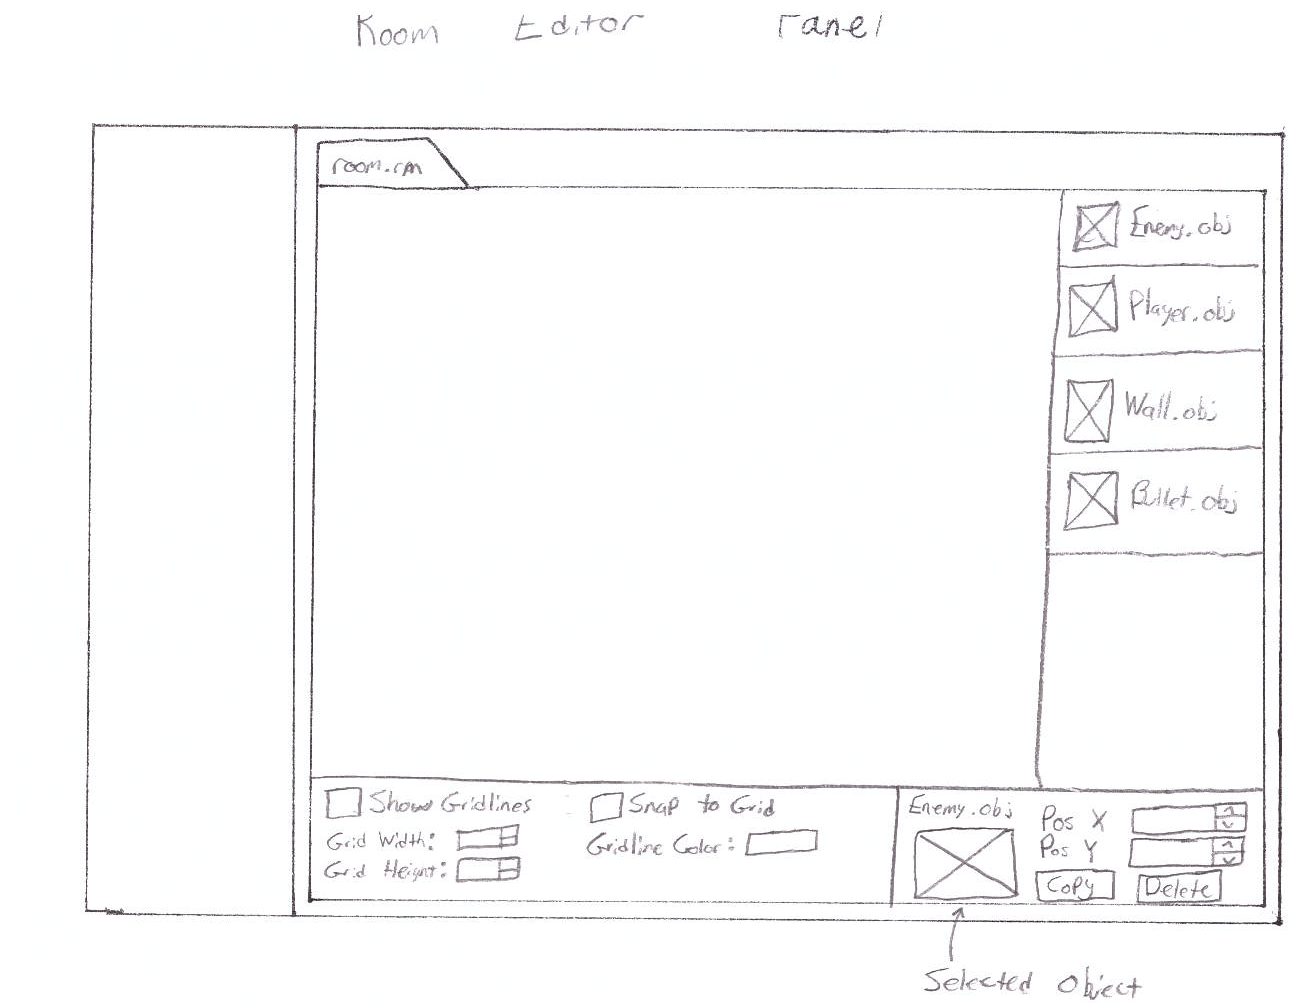 Room Editor Panel
room.rm
Enemy.obj
Player.obj
Wall.obj
Bullet.obj
Show Gridlines
Snap to Grid
Grid Width:
Gridline Color:
Grid Height:
Enemy.obj
Pos X
Pos Y
Copy
Delete
Selected Object